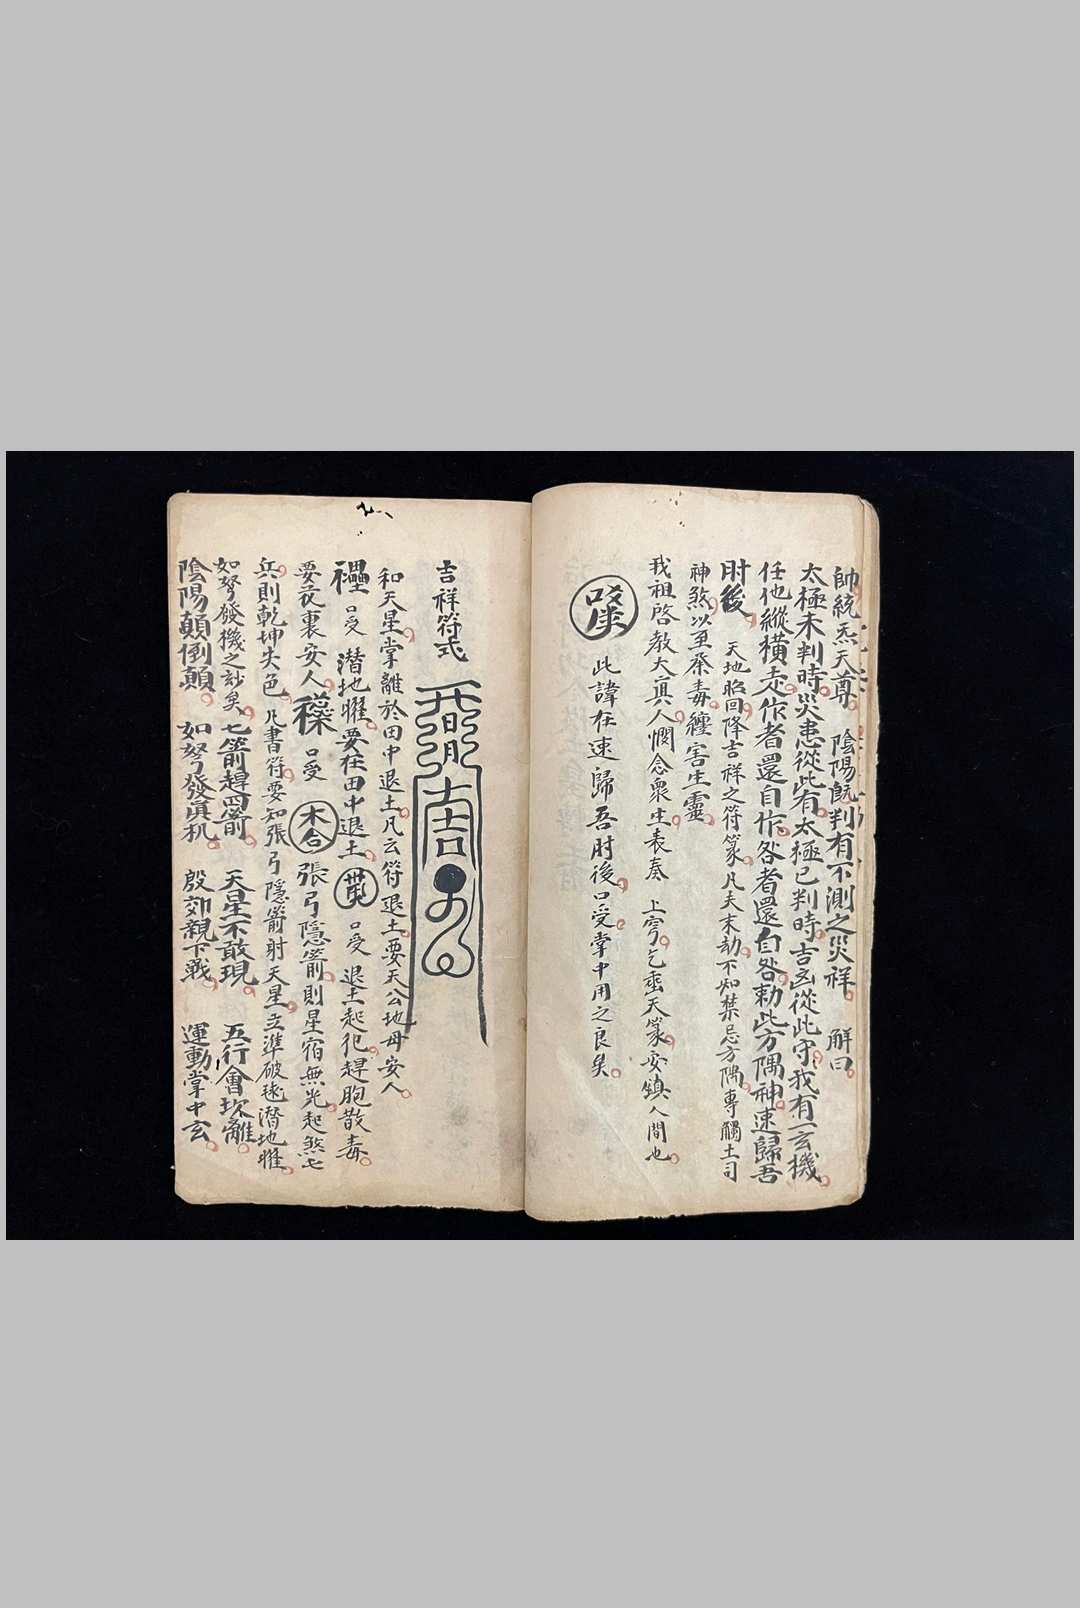 帥統炁天尊 陰陽既判有不測之災祥 解曰
太極未判時災患從此有太極已判時吉凶從此守我有一玄機
任他縱橫走作者還自作咎者還自咎勅此方隅神速歸吾
肘後 天地昭回降吉祥之符篆凡夫末劫不知禁忌方隅專觸土司
神煞以至痳毒纏害生靈
我祖啓教大真人憫念衆生表奏 上穹乞垂天篆安鎮人間也
此諱在速歸吾肘後口受掌中用之良矣
吉祥符式
和天星掌離於田中退土凡云符退土要天公地母安人
口受 潛地 要在田中退土 口受 退土起犯趕胞散毒
要花裏安人 口受 木合 張弓隱箭則星宿無光起煞七
兵則乾坤失色凡書符要知張弓隱箭射天星立準破毬潛地
如弩發機之玅矣 七箭趕四箭 天星不敢現 五行會坎離
陰陽顛倒顛 如弩發真机 殷郊親下戰 運動掌中玄